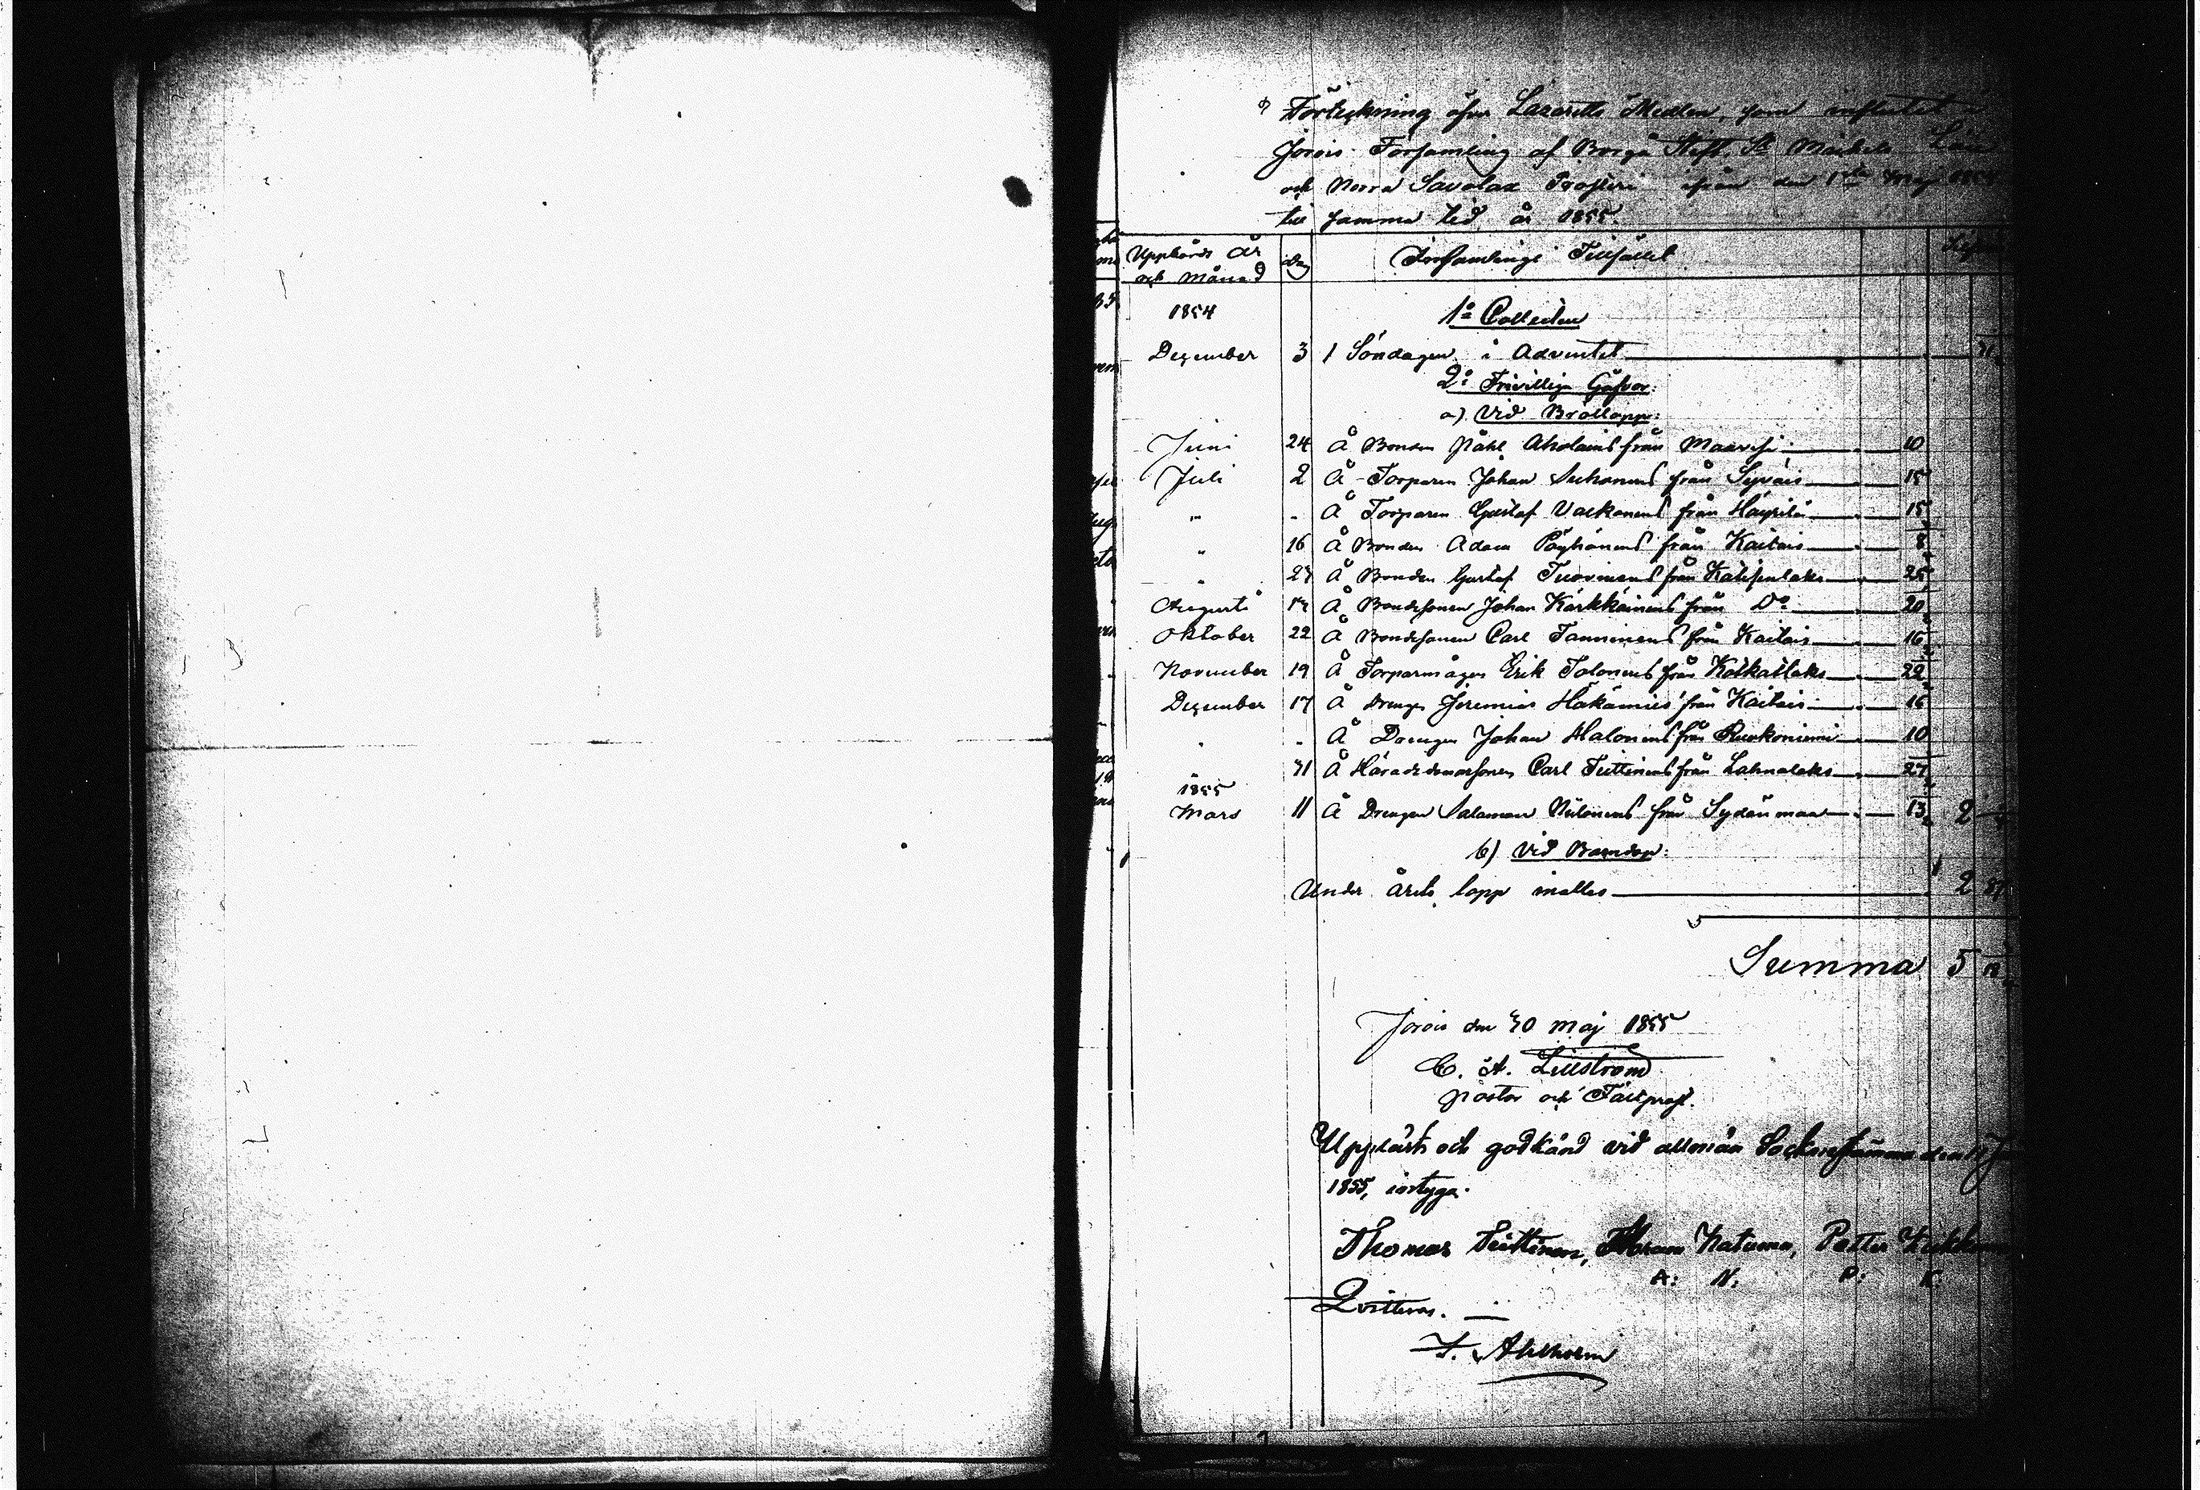 Förteckning öfver Lazaretts Medlen, som influtit
Jorois Församling af Borgå Stift, St Michels Län
och Norra Savolax Prosteri ifrån den 1sta Maj 1854
till samma tid år 1855.
Uppbörds År och Månad Dag Församlings Tillfället
1854 1o Collecten
December 3 1 Söndagen i Adventet 31
2o Frivilliga Gåfvor:
a) Vid Bröllopp:
Juni 24 Å Bonden Påhl Aholains från Maavesi 10
Juli 2 Å Torparen Johan Suhonens från Syväis 15
" - Å Torparen Gustaf Vaekonens från Häyrilä 15
" 16 Å Bonden Adam Pöyhönens från Kaitais 8
" 23 Å Bonden Gustaf Tuovinens från Katisenlaks 25
Augusti 13 Å Bondesonen Johan Kärkkäinens från Do 20
Oktober 22 Å Bondesonen Carl Tanninens från Kaitais 16
November 19 Å Torparmågen Erik Tolonens från Kotkatlaks 22
December 17 Å Drengen Jeremias Häkämies från Kaitais 16
" - Å Drengen Johan Halonens från Ruokoniemi 10
31 Å Häradsdomarsonen Carl Teittinens från Lahnalaks 27
1855
Mars 11 Å Drengen Salomon Niilonens från Sydänmaa 13 2
b) Vid Barndop:
Under årets lopp inalles 2 87
Summa 5 18
Jorois den 30 Maj 1855
C. A. Lillström
Pastor och Fältprost.
Uppläst och godkänd vid allmän Sockenstämma den
1855, intyga:
Thomas Teittinen, Abram Natunen, Petter
A: N: P: K
Qvitteras. —
F. Ahlholm